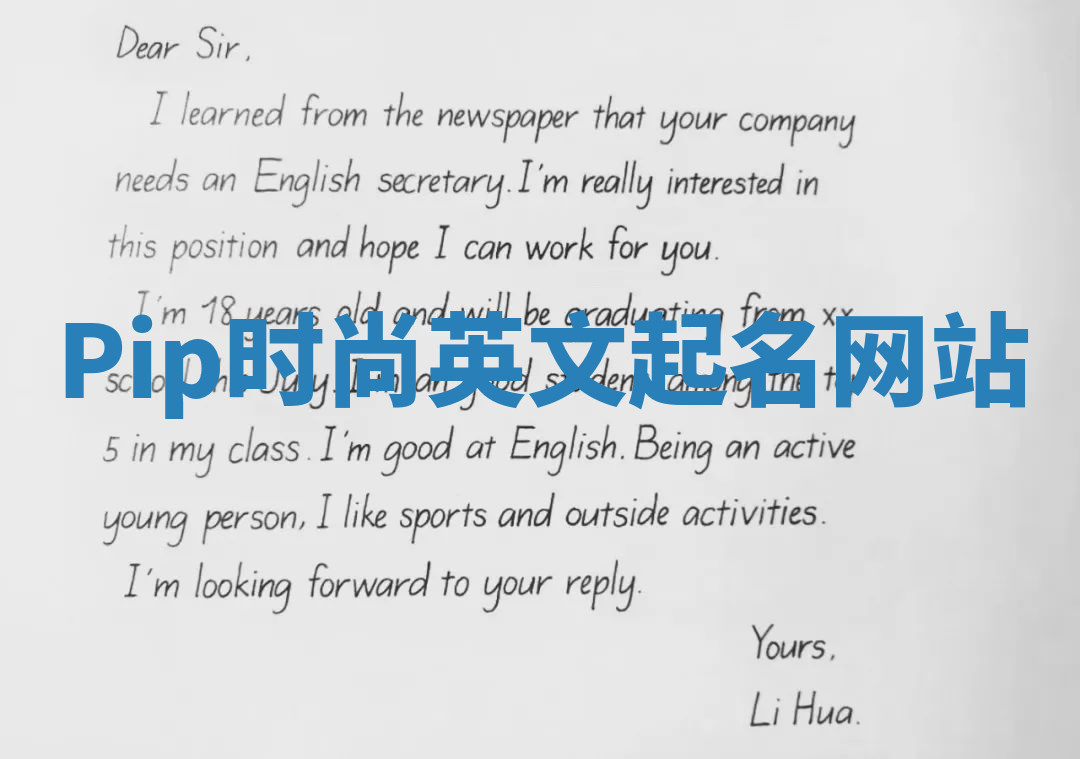 Dear Sir,
I learned from the newspaper that your company
needs an English secretary. I'm really interested in
this position and hope I can work for you.
I'm 18 years old and will be graduating from xx
Pip时尚英文起名网站
school in July. I'm a good student among the
5 in my class. I'm good at English. Being an active
young person, I like sports and outside activities.
I'm looking forward to your reply.
Yours,
Li Hua.